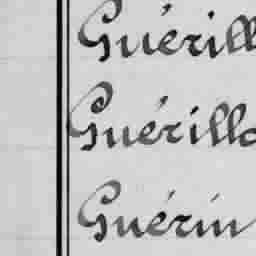 Guérill
Guérillo
Guérin